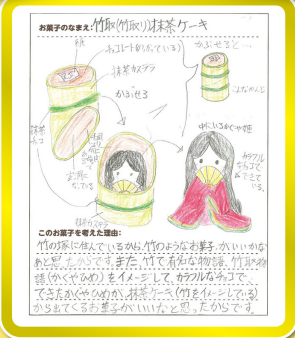 お菓子のなまえ: 竹取(竹取り)抹茶ケーキ
チョコレート
抹茶カステラ
かぶせる
かぶせると…
こんなかんじ
抹茶
チョコ
中にいるかぐや姫
カラフル
チョコで
できて
いる。
抹茶カステラ
このお菓子を考えた理由:
竹の塚に住んでいるから、竹のようなお菓子がいいかな
あと思ったからです。また、竹で有名な物語、竹取物
語(かぐやひめ)をイメージして、カラフルなチョコで、
できたかぐやひめが、抹茶ケーキ(竹をイメージしている)
から出てくるお菓子がいいなと思ったからです。